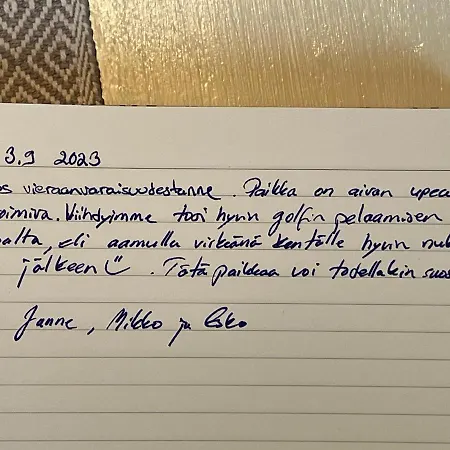 3.9 2023
os vieraanvaraisuudestanne. Paikka on aivan upea
oimiva. Viihdyimme tosi hyvin golfin pelaamisen
alta, eli aamulla virkeänä kentälle hyvin nuk
jälkeen Ü. Tätä paikkaa voi todellakin suos
Janne, Mikko ja Esko